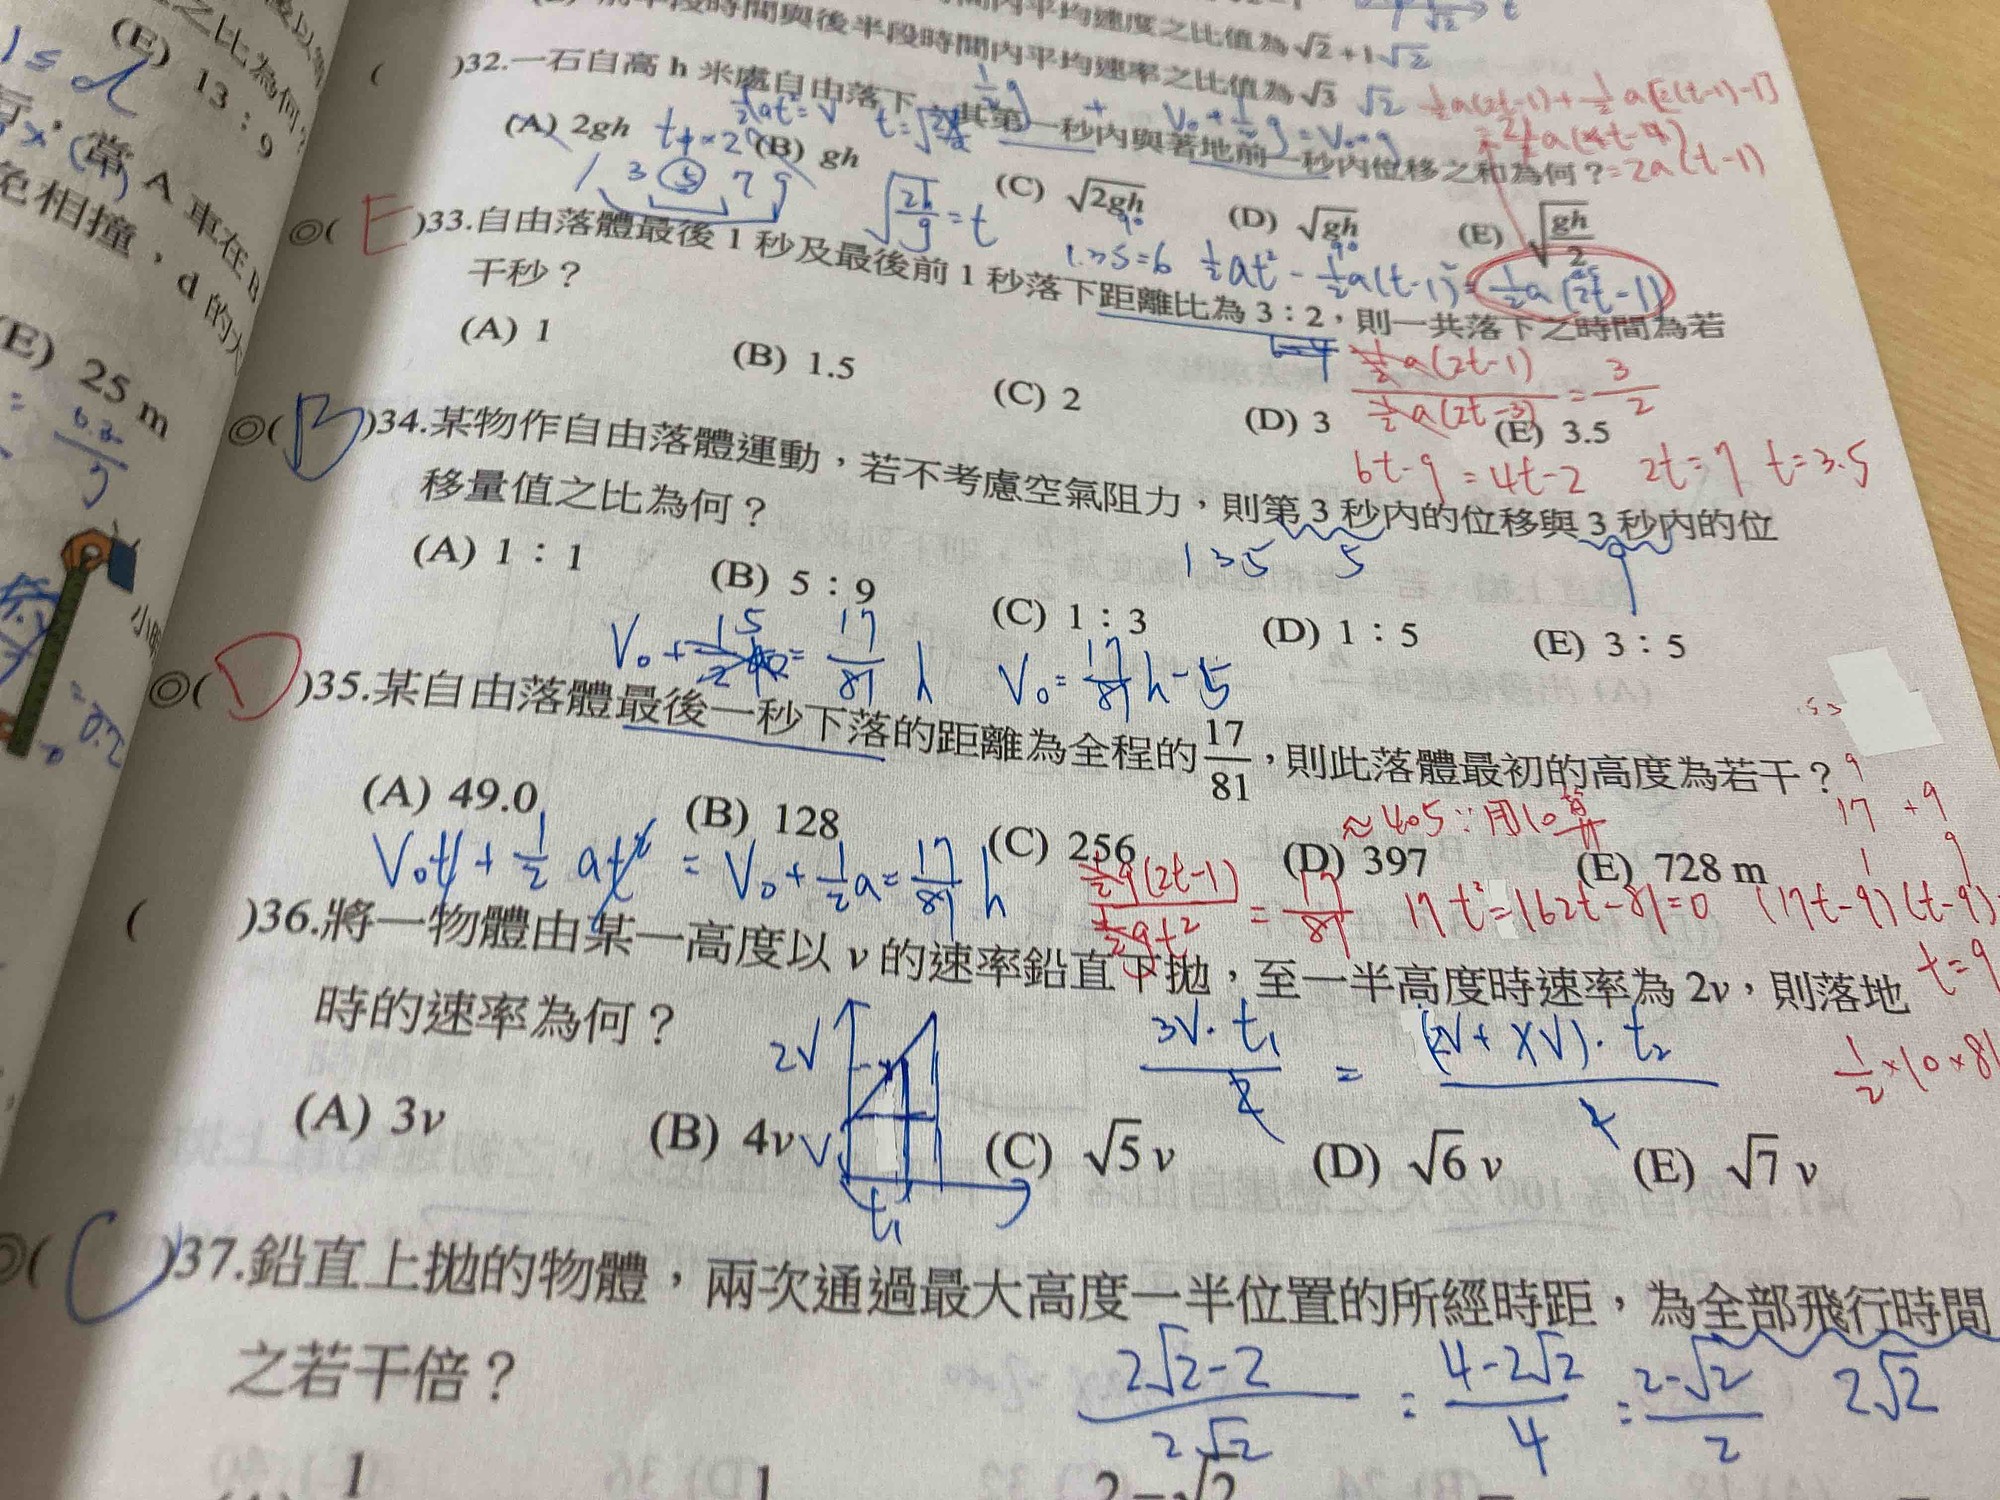 (E) 13：9
之比為何？
常 A 車在 B
免相撞，d 的大
(E) 25 m
前半段時間與後半段時間內平均速率之比值為 √3 √2
間內平均速度之比值為 √2 + 1 √2
( )32.一石自高 h 米處自由落下，其第一秒內與著地前一秒內位移之和為何？= 2a(t-1)
(A) 2gh (B) gh (C) √2gh (D) √gh (E) √gh/2
1 3 5 7 9
√2h/g = t
1 3 5 = 6 ½at² - ½a(t-1)² = ½a(2t-1)
◎( E )33.自由落體最後 1 秒及最後前 1 秒落下距離比為 3：2，則一共落下之時間為若
干秒？
(A) 1 (B) 1.5 (C) 2 (D) 3 (E) 3.5
½a(2t-1) / ½a(2t-3) = 3/2
6t-9 = 4t-2 2t=7 t=3.5
◎( B )34.某物作自由落體運動，若不考慮空氣阻力，則第 3 秒內的位移與 3 秒內的位
移量值之比為何？
1 3 5 5 9
(A) 1：1 (B) 5：9 (C) 1：3 (D) 1：5 (E) 3：5
V₀ = 17/81 h - 5
◎( D )35.某自由落體最後一秒下落的距離為全程的 17/81，則此落體最初的高度為若干？
(A) 49.0 (B) 128 (C) 256 (D) 397 (E) 728 m
≈405∵用10算
17 +9
1 9
V₀t + ½ at² = V₀ + ½a = 17/81 h
½g(2t-1) / ½gt² = 17/81 17t²=162t-81=0 (17t-9)(t-9)
t=9
½×10×81
( )36.將一物體由某一高度以 v 的速率鉛直下拋，至一半高度時速率為 2v，則落地
時的速率為何？
2V V t₁
3V·t₁/2 = (2V + XV)·t₂/2
(A) 3v (B) 4v (C) √5 v (D) √6 v (E) √7 v
◎( C )37.鉛直上拋的物體，兩次通過最大高度一半位置的所經時距，為全部飛行時間
之若干倍？
2√2-2 / 2√2 = 4-2√2 / 4 = 2-√2 / 2 2√2